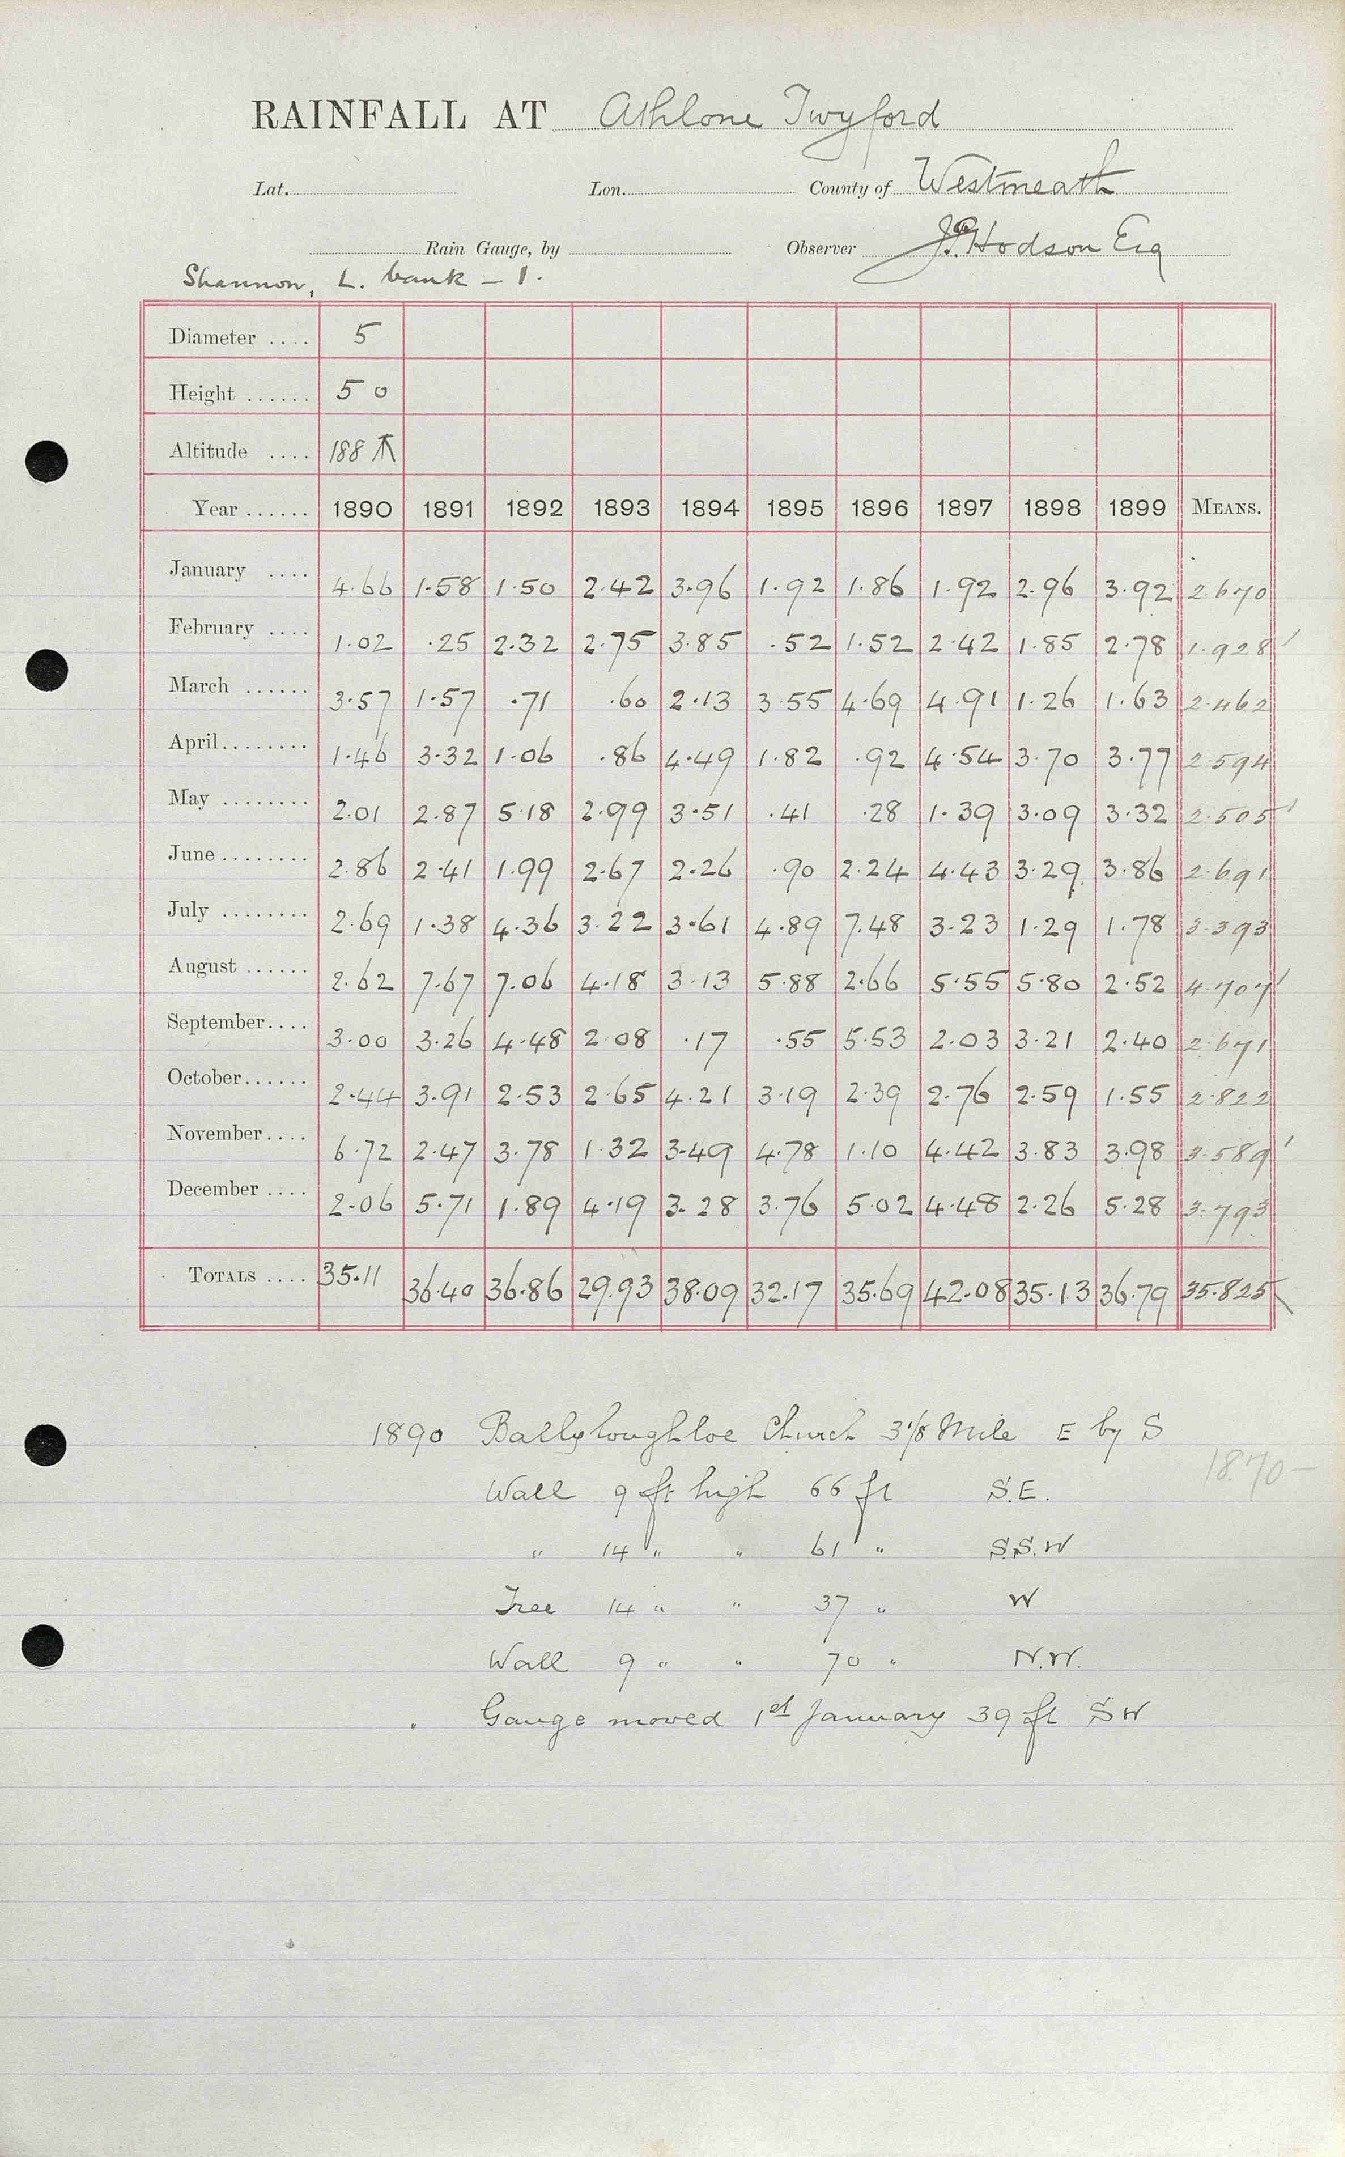 RAINFALL AT Athlone Twyford
Lat. Lon. County of Westmeath
Rain Gauge, by Observer J. Hodson Esq
Shannon, L. bank – 1.
Diameter .... 5
Height ...... 5 0
Altitude .... 188
Year ...... 1890 1891 1892 1893 1894 1895 1896 1897 1898 1899 MEANS.
January .... 4.66 1.58 1.50 2.42 3.96 1.92 1.86 1.92 2.96 3.92 2.670
February .... 1.02 .25 2.32 2.75 3.85 .52 1.52 2.42 1.85 2.78 1.928
March ...... 3.57 1.57 .71 .60 2.13 3.55 4.69 4.91 1.26 1.63 2.462
April........ 1.46 3.32 1.06 .86 4.49 1.82 .92 4.54 3.70 3.77 2.594
May ........ 2.01 2.87 5.18 2.99 3.51 .41 .28 1.39 3.09 3.32 2.505
June........ 2.86 2.41 1.99 2.67 2.26 .90 2.24 4.43 3.29 3.86 2.691
July ........ 2.69 1.38 4.36 3.22 3.61 4.89 7.48 3.23 1.29 1.78 3.393
August ...... 2.62 7.67 7.06 4.18 3.13 5.88 2.66 5.55 5.80 2.52 4.707
September.... 3.00 3.26 4.48 2.08 .17 .55 5.53 2.03 3.21 2.40 2.671
October...... 2.44 3.91 2.53 2.65 4.21 3.19 2.39 2.76 2.59 1.55 2.822
November.... 6.72 2.47 3.78 1.32 3.49 4.78 1.10 4.42 3.83 3.98 3.589
December .... 2.06 5.71 1.89 4.19 3.28 3.76 5.02 4.48 2.26 5.28 3.793
TOTALS .... 35.11 36.40 36.86 29.93 38.09 32.17 35.69 42.08 35.13 36.79 35.825
1890 Ballyloughloe Church 3 1/8 Mile E by S
1870–
Wall 9 ft high 66 ft S.E.
" 14 " " 61 " S.S.W
Tree 14 " " 37 " W
Wall 9 " " 70 " N.W.
Gauge moved 1st January 39 ft SW